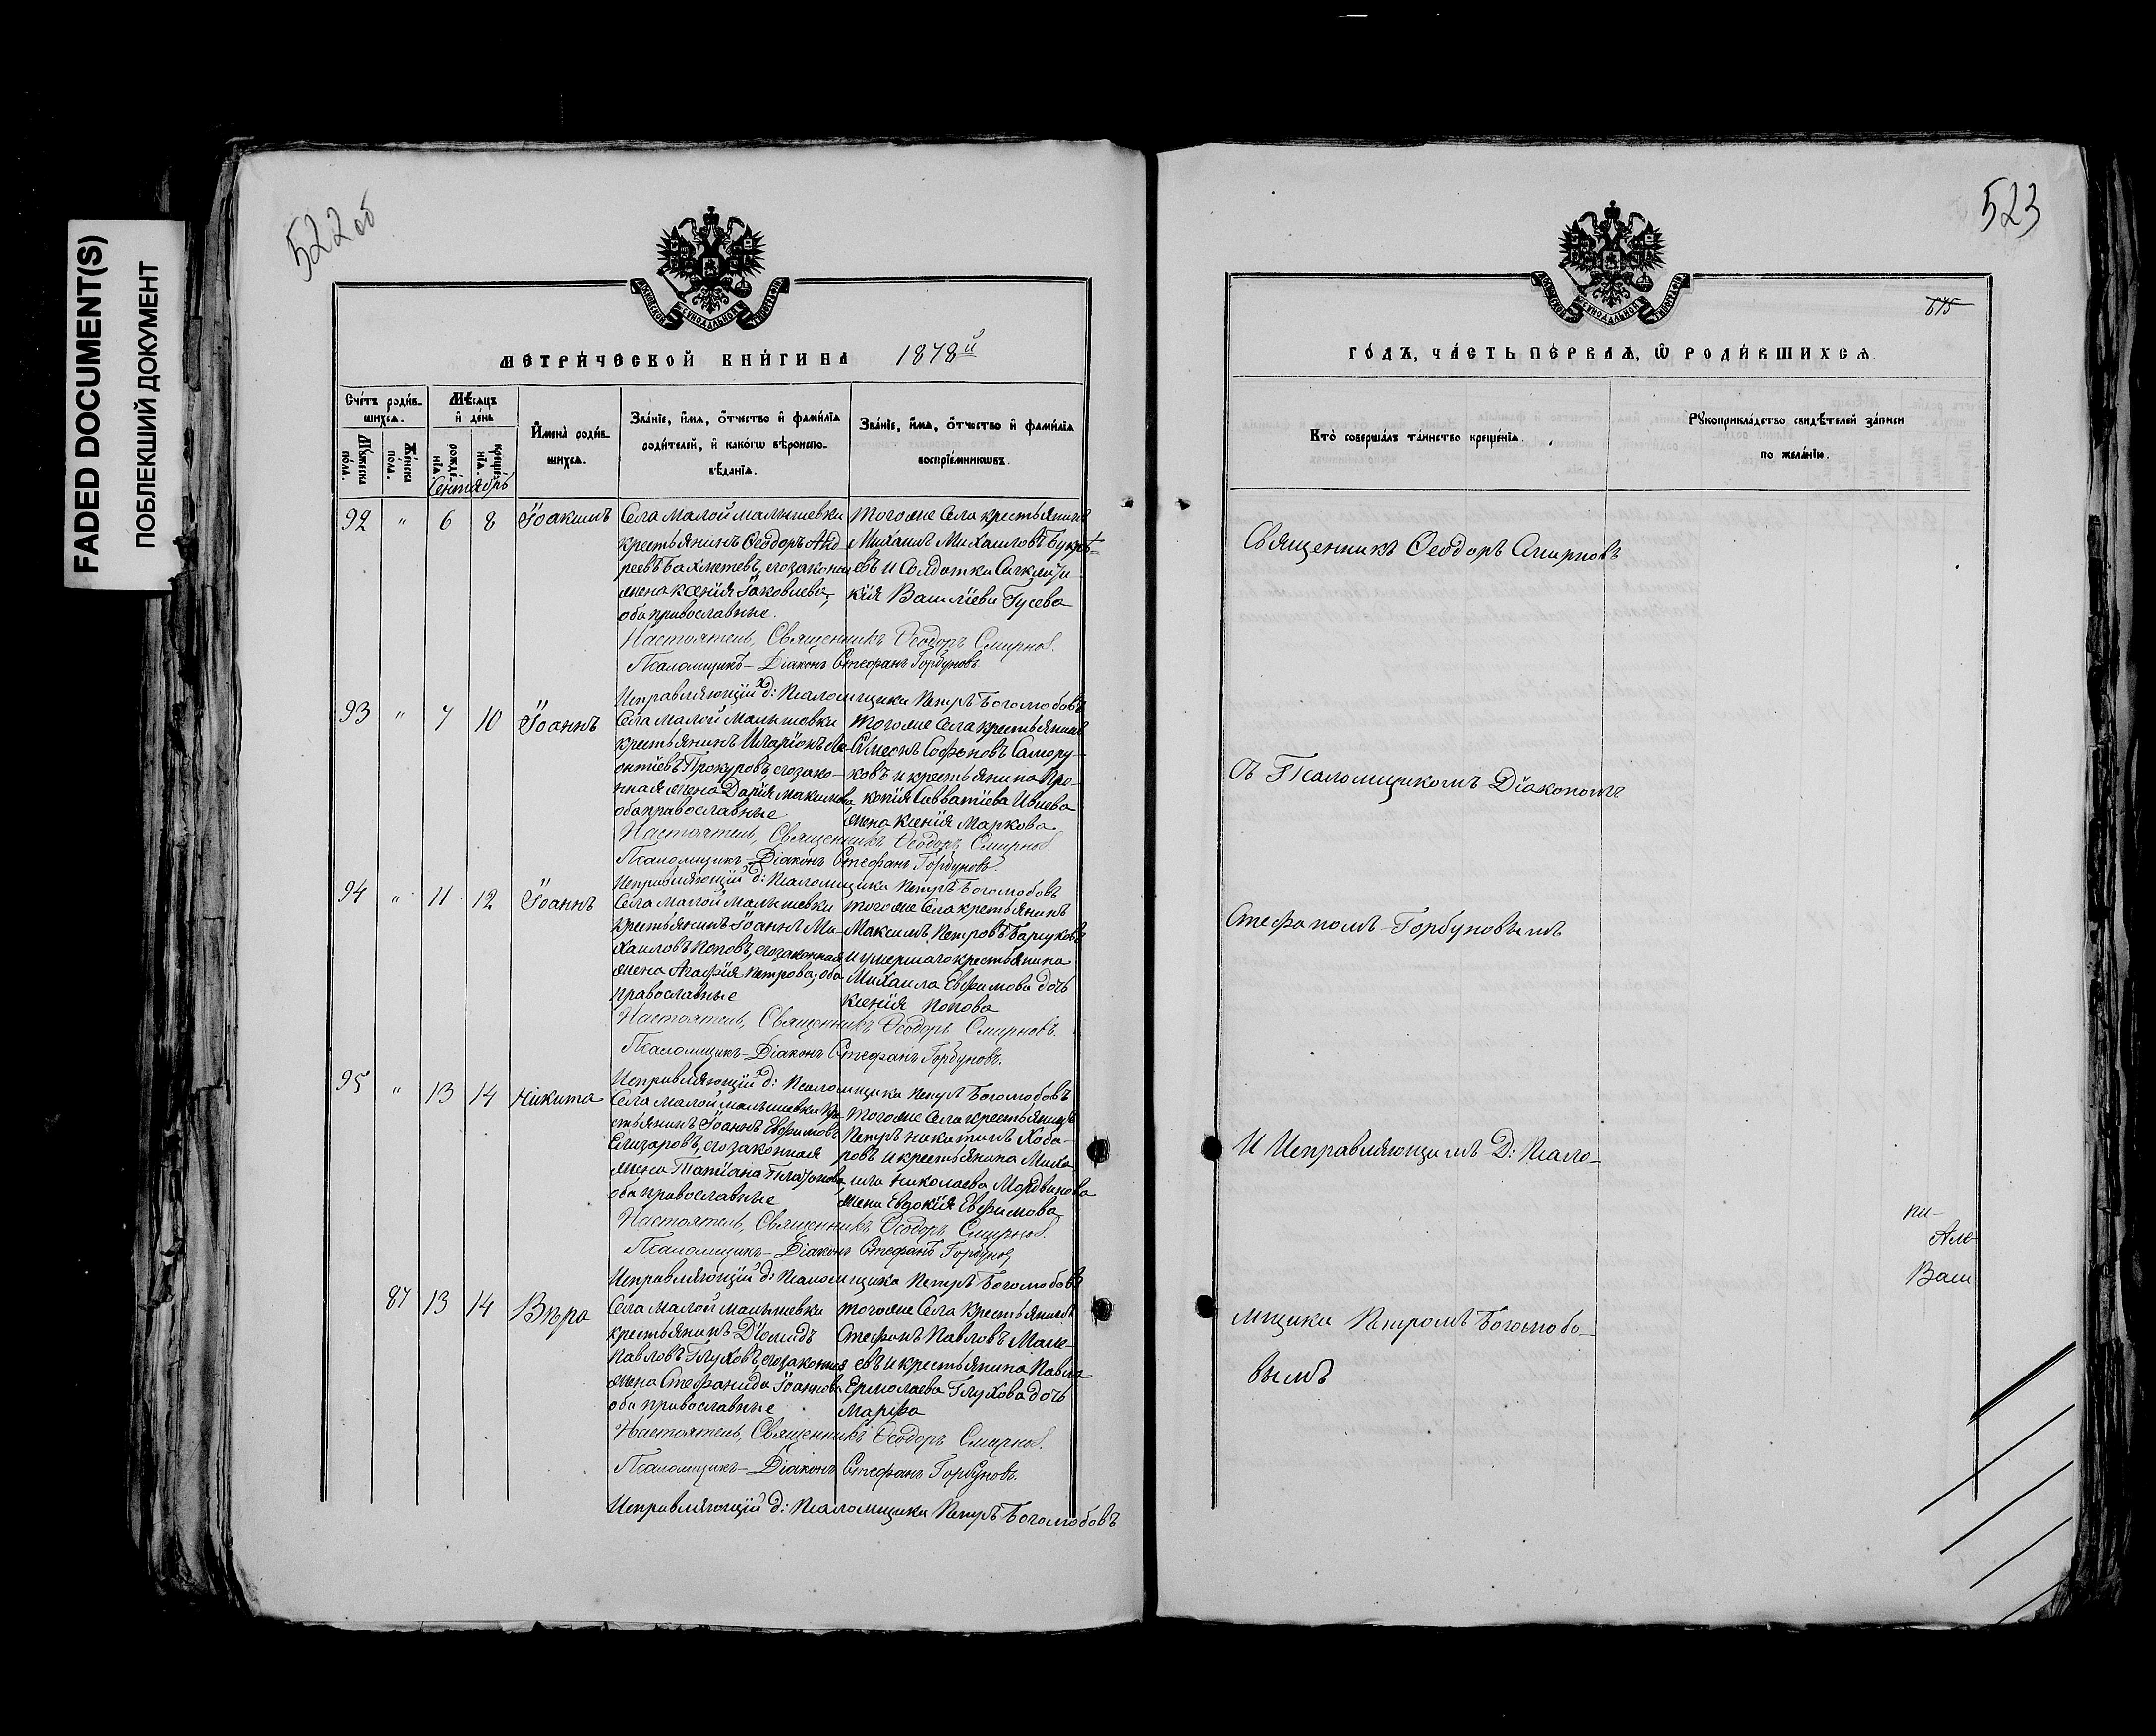 FADED DOCUMENT(S)
ПОБЛЕКШИЙ ДОКУМЕНТ
522 об
МЕТРИЧЕСКОЙ КНИГИ НА 1878й
Счетъ родив-
шихся.
Мужеска пола.
Женска пола.
Мѣсяцъ и день
рождѐ-
нія.
крещѐ-
нія.
Имена родив-
шихся.
Званіе, имя, отчество и фамилія
родителей, и какогѡ вѣроиспо-
вѣданія.
Званіе, имя, отчество и фамилія
воспріемникѡвъ.
Сентябрь
92 " 6 8 Іоакимъ
Села Малой малышевки
крестьянинъ Ѳеодоръ Анд-
реевъ Бахметевъ, его законн
жена Ксенія Іаковлева,
оба православные.
тогоже Села крестьянинъ
Михаилъ Михаиловъ
евъ и Солдатки
кія Василіева Гусева
Настоятель, Священникъ Ѳеодоръ Смирнов.
Псаломщикъ – Діаконъ Стефанъ Горбуновъ
Исправляющій д: Псаломщика Петръ Боголюбовъ
93 " 7 10 Іоаннъ
Села Малой Малышевки
крестьянинъ Иларіонъ Ле-
онтіевъ Прокуровъ, его зако-
нная жена Дарія Максимова
оба православные
тогоже Села крестьянинъ
Сѵмеонъ Софоновъ Самору-
ковъ и крестьянина Про-
копія Савватіева Ивлева
жена Ксенія Маркова
Настоятель, Священникъ Ѳеодоръ Смирнов.
Псаломщикъ – Діаконъ Стефанъ Горбуновъ.
Исправляющій д: Псаломщика Петръ Боголюбовъ
94 " 11 12 Іоаннъ
Села Малой Малышевки
крестьянинъ Іоаннъ Ми-
хаиловъ Поповъ, его законная
жена Агафія Петрова, оба
православные
тогоже Села крестьянинъ
Максимъ Петровъ Барсуковъ
и умершаго крестьянина
Михаила Евфимова дочь
Ксенія Попова
Настоятель, Священникъ Ѳеодоръ Смирновъ.
Псаломщикъ – Діаконъ Стефанъ Горбуновъ.
Исправляющій д: Псаломщика Петръ Боголюбовъ
95 " 13 14 Никита
Села Малой малышевки кре-
стьянинъ Іоаннъ Евфимовъ
Елизаровъ, его законная
жена Татіана Платонова
оба православные
тогоже Села крестьянинъ
Петръ Никитинъ Хоба-
ровъ и крестьянина Миха-
ила Николаева Мордвинова
жена Евдокія Евфимова
Настоятель, Священникъ Ѳеодоръ Смирнов.
Псаломщикъ – Діаконъ Стефанъ Горбунов
Исправляющій д: Псаломщика Петръ Боголюбовъ
87 13 14 Вѣра
Села Малой малышевки
крестьянинъ Діомидъ
Павловъ Глуховъ, его законная
жена Стефанида Іоаннова
оба православные
тогоже Села крестьянинъ
Стефанъ Павловъ Мале-
евъ и крестьянина Павла
Ермолаева Глухова дочь
Марѳа
Настоятель, Священникъ Ѳеодоръ Смирнов.
Псаломщикъ – Діаконъ Стефанъ Горбуновъ.
Исправляющій д: Псаломщика Петръ Боголюбовъ
523
615
ГОДЪ, ЧАСТЬ ПЕРВАЯ, Ѡ РОДИВШИХСЯ.
Кто совершалъ таинство крещенія.
Рукоприкладство свидѣтелей записи
по желанію.
Священникъ Ѳеодоръ Смирновъ
съ Псаломщикомъ Діакономъ
Стефаномъ Горбуновымъ
и Исправляющимъ Д: Псало-
мщика Петромъ Боголюбо-
вымъ
пи-
Але
Васи